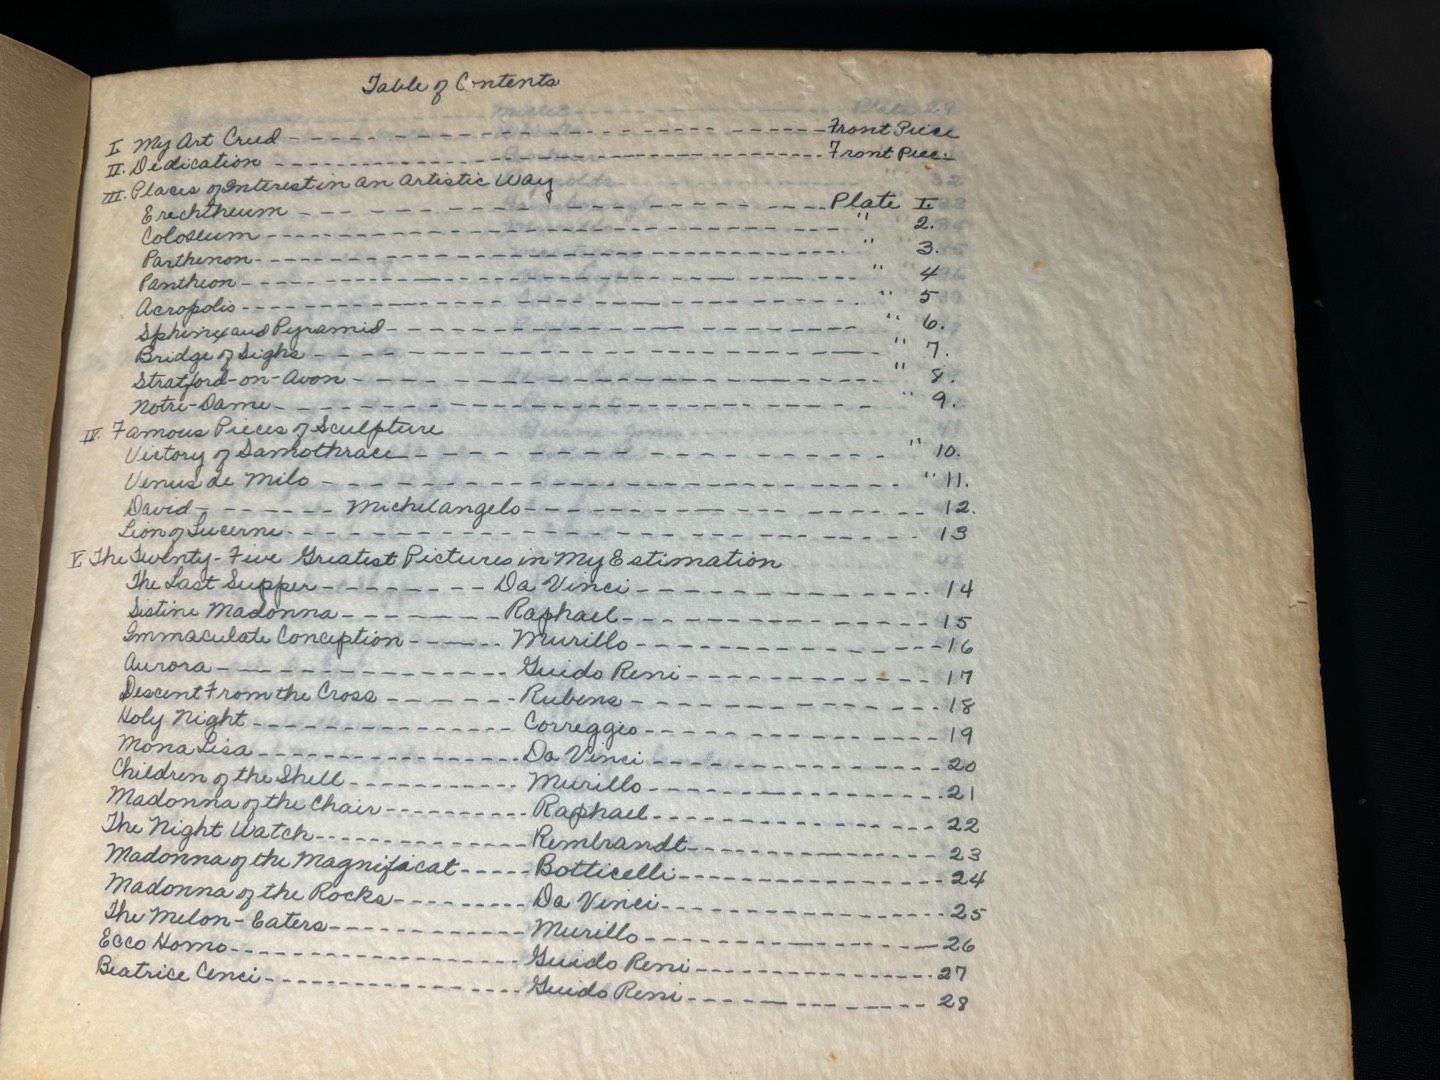 Table of Contents
I. My Art Creed - - - - - - - - - - - - - - - - - - - - Front Piece
II. Dedication - - - - - - - - - - - - - - - - - - - - Front Piece
III. Places of Interest in an Artistic Way
Erechtheum - - - - - - - - - - - - - - - - - - - - Plate I.
Coloseum - - - - - - - - - - - - - - - - - - - - " 2.
Parthenon - - - - - - - - - - - - - - - - - - - - " 3.
Pantheon - - - - - - - - - - - - - - - - - - - - " 4
Acropolis - - - - - - - - - - - - - - - - - - - - " 5
Sphinx and Pyramid - - - - - - - - - - - - - - - - " 6.
Bridge of Sighs - - - - - - - - - - - - - - - - - - " 7.
Stratford-on-Avon - - - - - - - - - - - - - - - - " 8.
Notre-Dame - - - - - - - - - - - - - - - - - - - - " 9.
IV. Famous Pieces of Sculpture
Victory of Samothrace - - - - - - - - - - - - - - - " 10.
Venus de Milo - - - - - - - - - - - - - - - - - - - " 11.
David - - - - - - Michelangelo - - - - - - - - - - 12.
Lion of Lucerne - - - - - - - - - - - - - - - - - - 13
V. The Twenty-Five Greatest Pictures in My Estimation
The Last Supper - - - - - - - Da Vinci - - - - - - - - - - 14
Sistine Madonna - - - - - - - Raphael - - - - - - - - - - 15
Immaculate Conception - - - - - Murillo - - - - - - - - - - 16
Aurora - - - - - - - - - - Guido Reni - - - - - - - - - - 17
Descent From the Cross - - - - - Rubens - - - - - - - - - - 18
Holy Night - - - - - - - - - - Correggio - - - - - - - - - - 19
Mona Lisa - - - - - - - - - - Da Vinci - - - - - - - - - - 20
Children of the Shell - - - - - - - Murillo - - - - - - - - - - 21
Madonna of the Chair - - - - - - - Raphael - - - - - - - - - - 22
The Night Watch - - - - - - - - - - Rembrandt - - - - - - - - - - 23
Madonna of the Magnificat - - - - - Botticelli - - - - - - - - - - 24
Madonna of the Rocks - - - - - - - Da Vinci - - - - - - - - - - 25
The Melon-Eaters - - - - - - - - - - Murillo - - - - - - - - - - 26
Ecco Homo - - - - - - - - - - Guido Reni - - - - - - - - - - 27
Beatrice Cenci - - - - - - - - - - Guido Reni - - - - - - - - - - 28